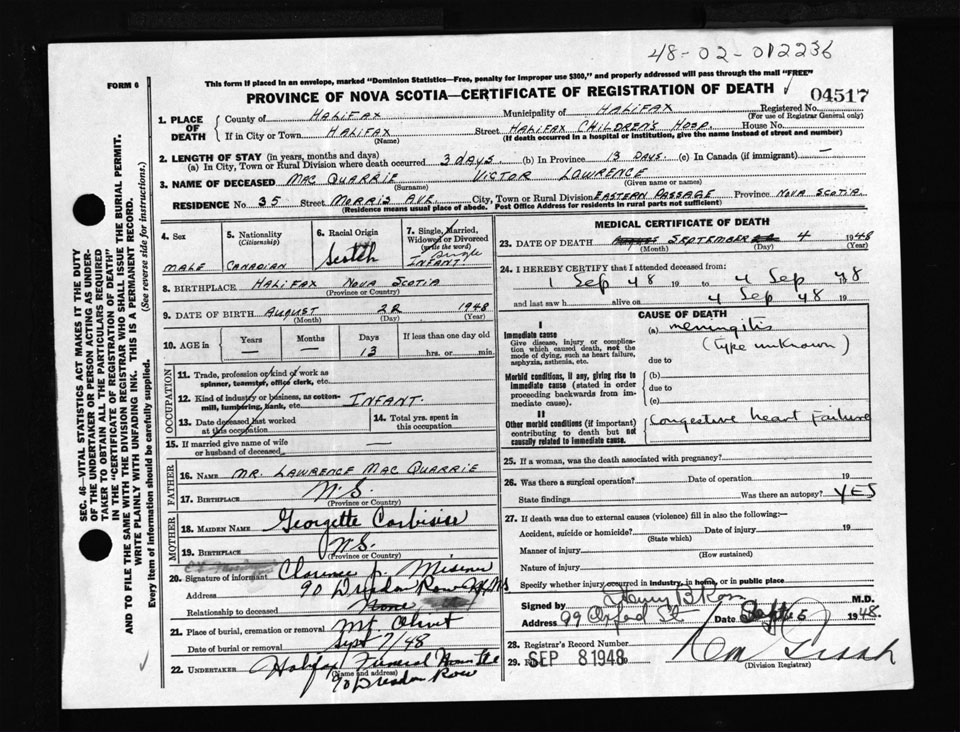 48-02-012236
FORM 6
This form if placed in an envelope, marked "Dominion Statistics—Free, penalty for improper use $300," and properly addressed will pass through the mail "FREE"
PROVINCE OF NOVA SCOTIA—CERTIFICATE OF REGISTRATION OF DEATH
04517
1. PLACE OF DEATH
County of HALIFAX Municipality of HALIFAX Registered No.
(For use of Registrar General only)
If in City or Town HALIFAX Street HALIFAX CHILDREN'S HOSP. House No.
(Name) (If death occurred in a hospital or institution, give the name instead of street and number)
2. LENGTH OF STAY (in years, months and days)
(a) In City, Town or Rural Division where death occurred 3 DAYS (b) In Province 13 DAYS. (c) In Canada (if immigrant) —
3. NAME OF DECEASED MAC QUARRIE VICTOR LAWRENCE
(Surname) (Given name or names)
RESIDENCE No. 35 Street MORRIS AVE. City, Town or Rural Division EASTERN PASSAGE Province NOVA SCOTIA
(Residence means usual place of abode. Post Office Address for residents in rural parts not sufficient)
4. Sex
MALE
5. Nationality
(Citizenship)
CANADIAN
6. Racial Origin
Scotch
7. Single, Married,
Widowed or Divorced
(write the word)
Single
INFANT.
8. BIRTHPLACE HALIFAX NOVA SCOTIA
(Province or Country)
9. DATE OF BIRTH AUGUST 22 1948
(Month) (Day) (Year)
10. AGE in
Years Months Days If less than one day old
— — 13 hrs. or min.
OCCUPATION
11. Trade, profession or kind of work as
spinner, teamster, office clerk, etc.
12. Kind of industry or business, as cotton-
mill, lumbering, bank, etc. INFANT.
13. Date deceased last worked
at this occupation
14. Total yrs. spent in
this occupation
15. If married give name of wife
or husband of deceased —
FATHER
16. NAME MR. LAWRENCE MAC QUARRIE
17. BIRTHPLACE N.S.
(Province or Country)
MOTHER
18. MAIDEN NAME Georgette
19. BIRTHPLACE N.S.
(Province or Country)
20. Signature of informant Clarence J. Misener
Address 90 Row
Relationship to deceased None
21. Place of burial, cremation or removal Mt. Olivet
Date of burial or removal Sept 7/48
22. UNDERTAKER Halifax Funeral Home
(Name and address)
90 Row
MEDICAL CERTIFICATE OF DEATH
23. DATE OF DEATH SEPTEMBER 4 1948
(Month) (Day) (Year)
24. I HEREBY CERTIFY that I attended deceased from:
1 Sep 48 19 to 4 Sep 48
and last saw h alive on 4 Sep 48 19
CAUSE OF DEATH
I
Immediate cause
Give disease, injury or complica-
tion which caused death, not the
mode of dying, such as heart failure,
asphyxia, asthenia, etc.
(a) meningitis
(type unknown)
due to
Morbid conditions, if any, giving rise to
immediate cause (stated in order
proceeding backwards from im-
mediate cause).
(b)
due to
(c)
II
Other morbid conditions (if important)
contributing to death but not
causally related to immediate cause.
Congestive heart failure
25. If a woman, was the death associated with pregnancy?
26. Was there a surgical operation? Date of operation 19
State findings Was there an autopsy? YES
27. If death was due to external causes (violence) fill in also the following:—
Accident, suicide or homicide? Date of injury 19
(State which)
Manner of injury
(How sustained)
Nature of injury
Specify whether injury occurred in industry, in home, or in public place
Signed by Henry B Ross M.D.
Address 99 Oxford St Date Sept 5 1948.
28. Registrar's Record Number
29. SEP 8 1948
(Division Registrar)
SEC. 46—VITAL STATISTICS ACT MAKES IT THE DUTY
OF THE UNDERTAKER OR PERSON ACTING AS UNDER-
TAKER TO OBTAIN ALL THE PARTICULARS REQUIRED
IN THE "CERTIFICATE OF REGISTRATION OF DEATH"
AND TO FILE THE SAME WITH THE DIVISION REGISTRAR WHO SHALL ISSUE THE BURIAL PERMIT.
WRITE PLAINLY WITH UNFADING INK. THIS IS A PERMANENT RECORD.
Every item of information should be carefully supplied. (See reverse side for instructions.)